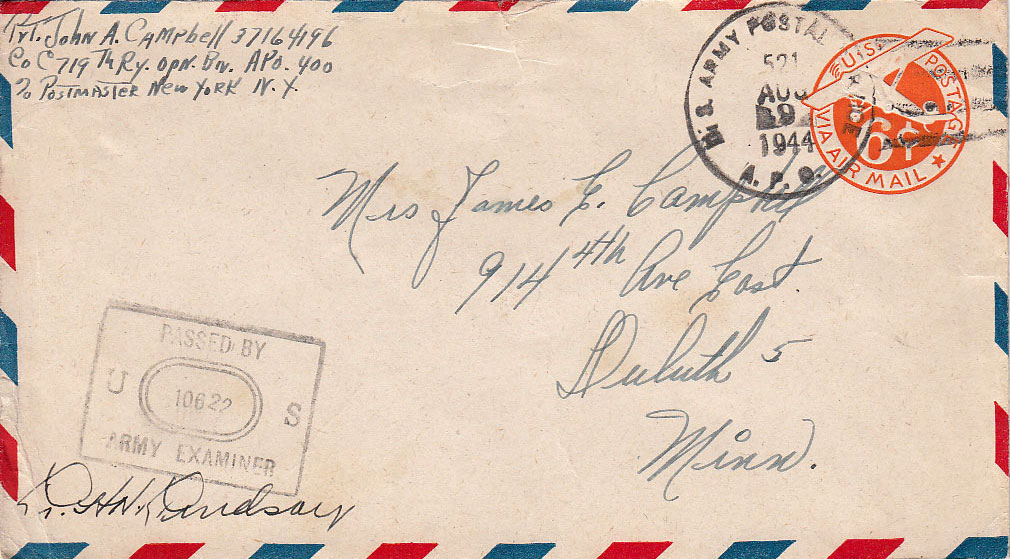 Pvt. John A. Campbell 37164196
Co C 719th Ry. Opn. Bn. APO. 400
℅ Postmaster New York N.Y.
U.S. ARMY POSTAL SERVICE
521
AUG
1944
A.P.O.
U.S. POSTAGE
6¢
VIA AIR MAIL
Mrs James E. Campbell
914 4th Ave East.
Duluth 5
Minn.
PASSED BY
U 10622 S
ARMY EXAMINER
Lindsay